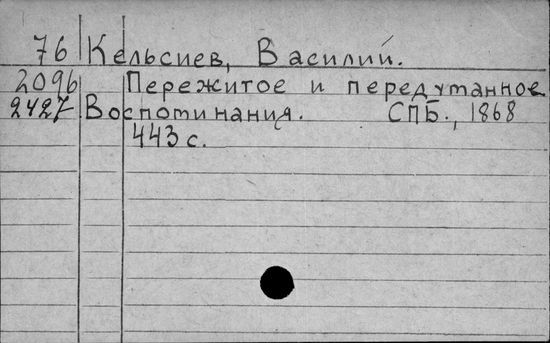 76 Кельсиев, Василий.
2096 Пережитое и передуманное
2427 Воспоминания. СПБ., 1868
443 с.